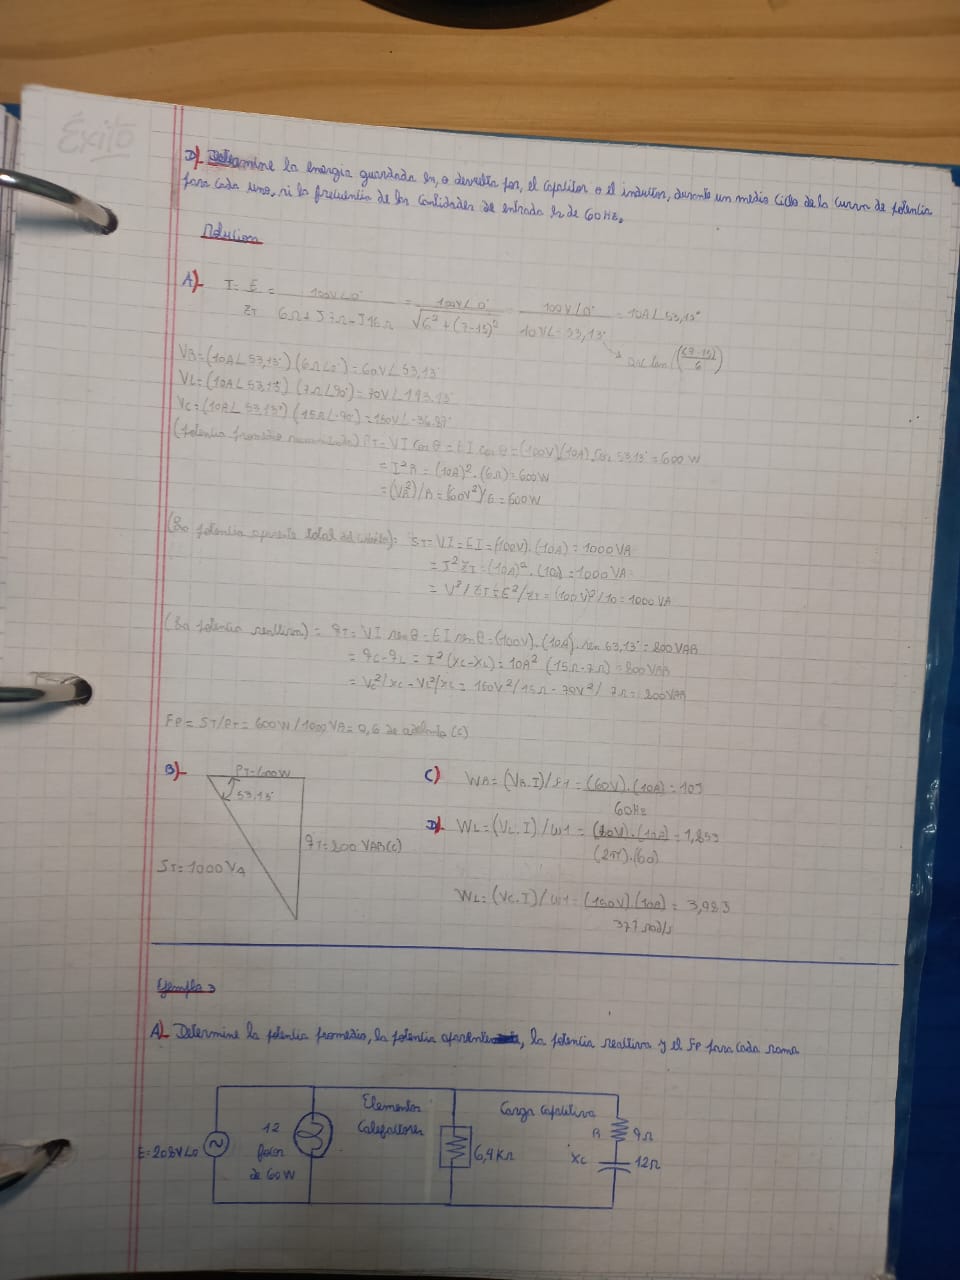 Éxito
D)- Determine la energia guardada en, o devuelta por, el capasitor o el inductor, durante un medio ciclo de la curva de potencia
para cada uno, si la frecuencia de las cantidades de entrada es de 60 Hz.
Solucion
A)- I = E/ZT = 100V∠0°/6Ω+J7Ω-J15Ω = 100V∠0°/√6²+(7-15)² = 100V∠0°/10V∠-53,13° = 10A∠53,13°
VR=(10A∠53,13°)(6Ω∠0°)=60V∠53,13°
VL=(10A∠53,13°)(7Ω∠90°)=70V∠143,13°
VC=(10A∠53,13°)(15Ω∠-90°)=150V∠-36,87°
PT=VI cos θ = EI cos θ=(100V)(10A) cos 53,13°=600W
=I²R=(10A)².(6Ω)=600W
=(VR²)/R=(60V²)/6=600W
(La potencia aparente total del circuito): ST=VI=EI=(100V).(10A)=1000VA
=I²ZT=(10A)².(10)=1000VA
=V²/ZT=E²/ZT=(100V)²/10=1000VA
(La potencia reactiva)= qT=VI sen θ=EI sen θ=(100V).(10A).sen 53,13°=800VAR
=qC-qL=I²(XC-XL)=10A²(15Ω-7Ω)=800VAR
=VC²/XC-VL²/XL=150V²/15Ω-70V²/7Ω=800VAR
FP=ST/PT=600W/1000VA=0,6 de adelanto (C)
B)-
PT=600W
53,13°
qT=800VAR(C)
ST=1000VA
C) WR=(VR.I)/f1=(60V).(10A)/60Hz=10J
D)- WL=(VL.I)/w1=(70V).(10A)/(2π).(60)=1,85J
WL=(VC.I)/w1=(150V).(10A)/377rad/s=3,98J
Ejemplo 3
A)- Determine la potencia promedio, la potencia aparente, la potencia reactiva y el FP para cada rama
E=208V∠0
12
de 60W
Elementos
Calefactores
6,4KΩ
Carga Capacitiva
R
9Ω
XC
12Ω